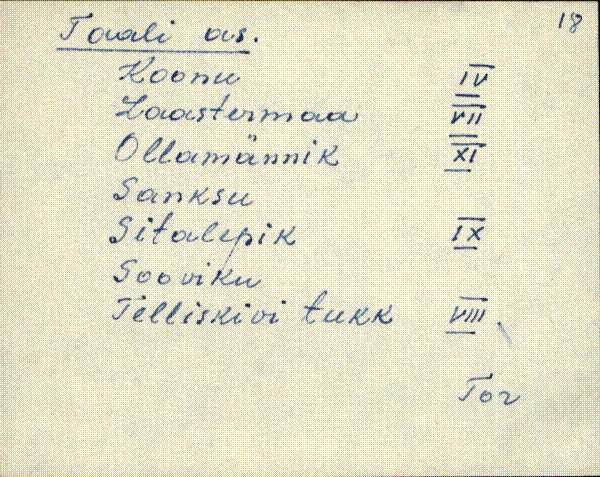 18
Taali as.
Koonu IV
Laastermaa VII
Ollamännik XI
Sanksu
Sitalepik IX
Sooviku
Telliskivi tukk VIII.
Tor